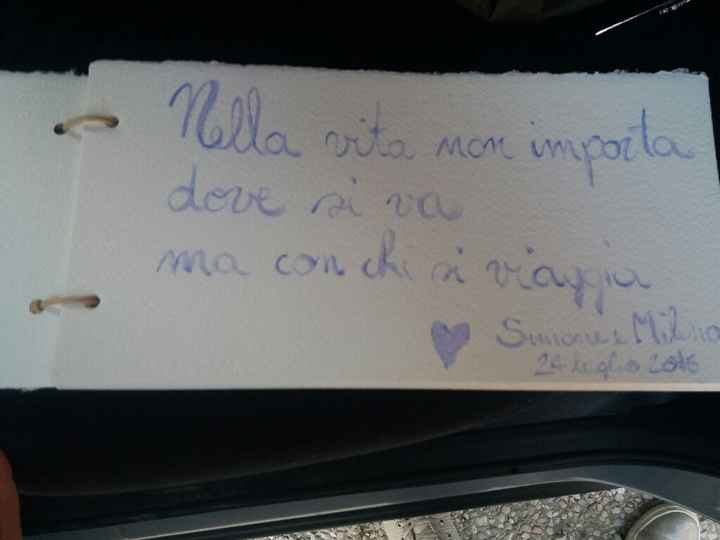 Nella vita non importa
dove si va
ma con chi si viaggia
Simone e Milena
24 luglio 2016